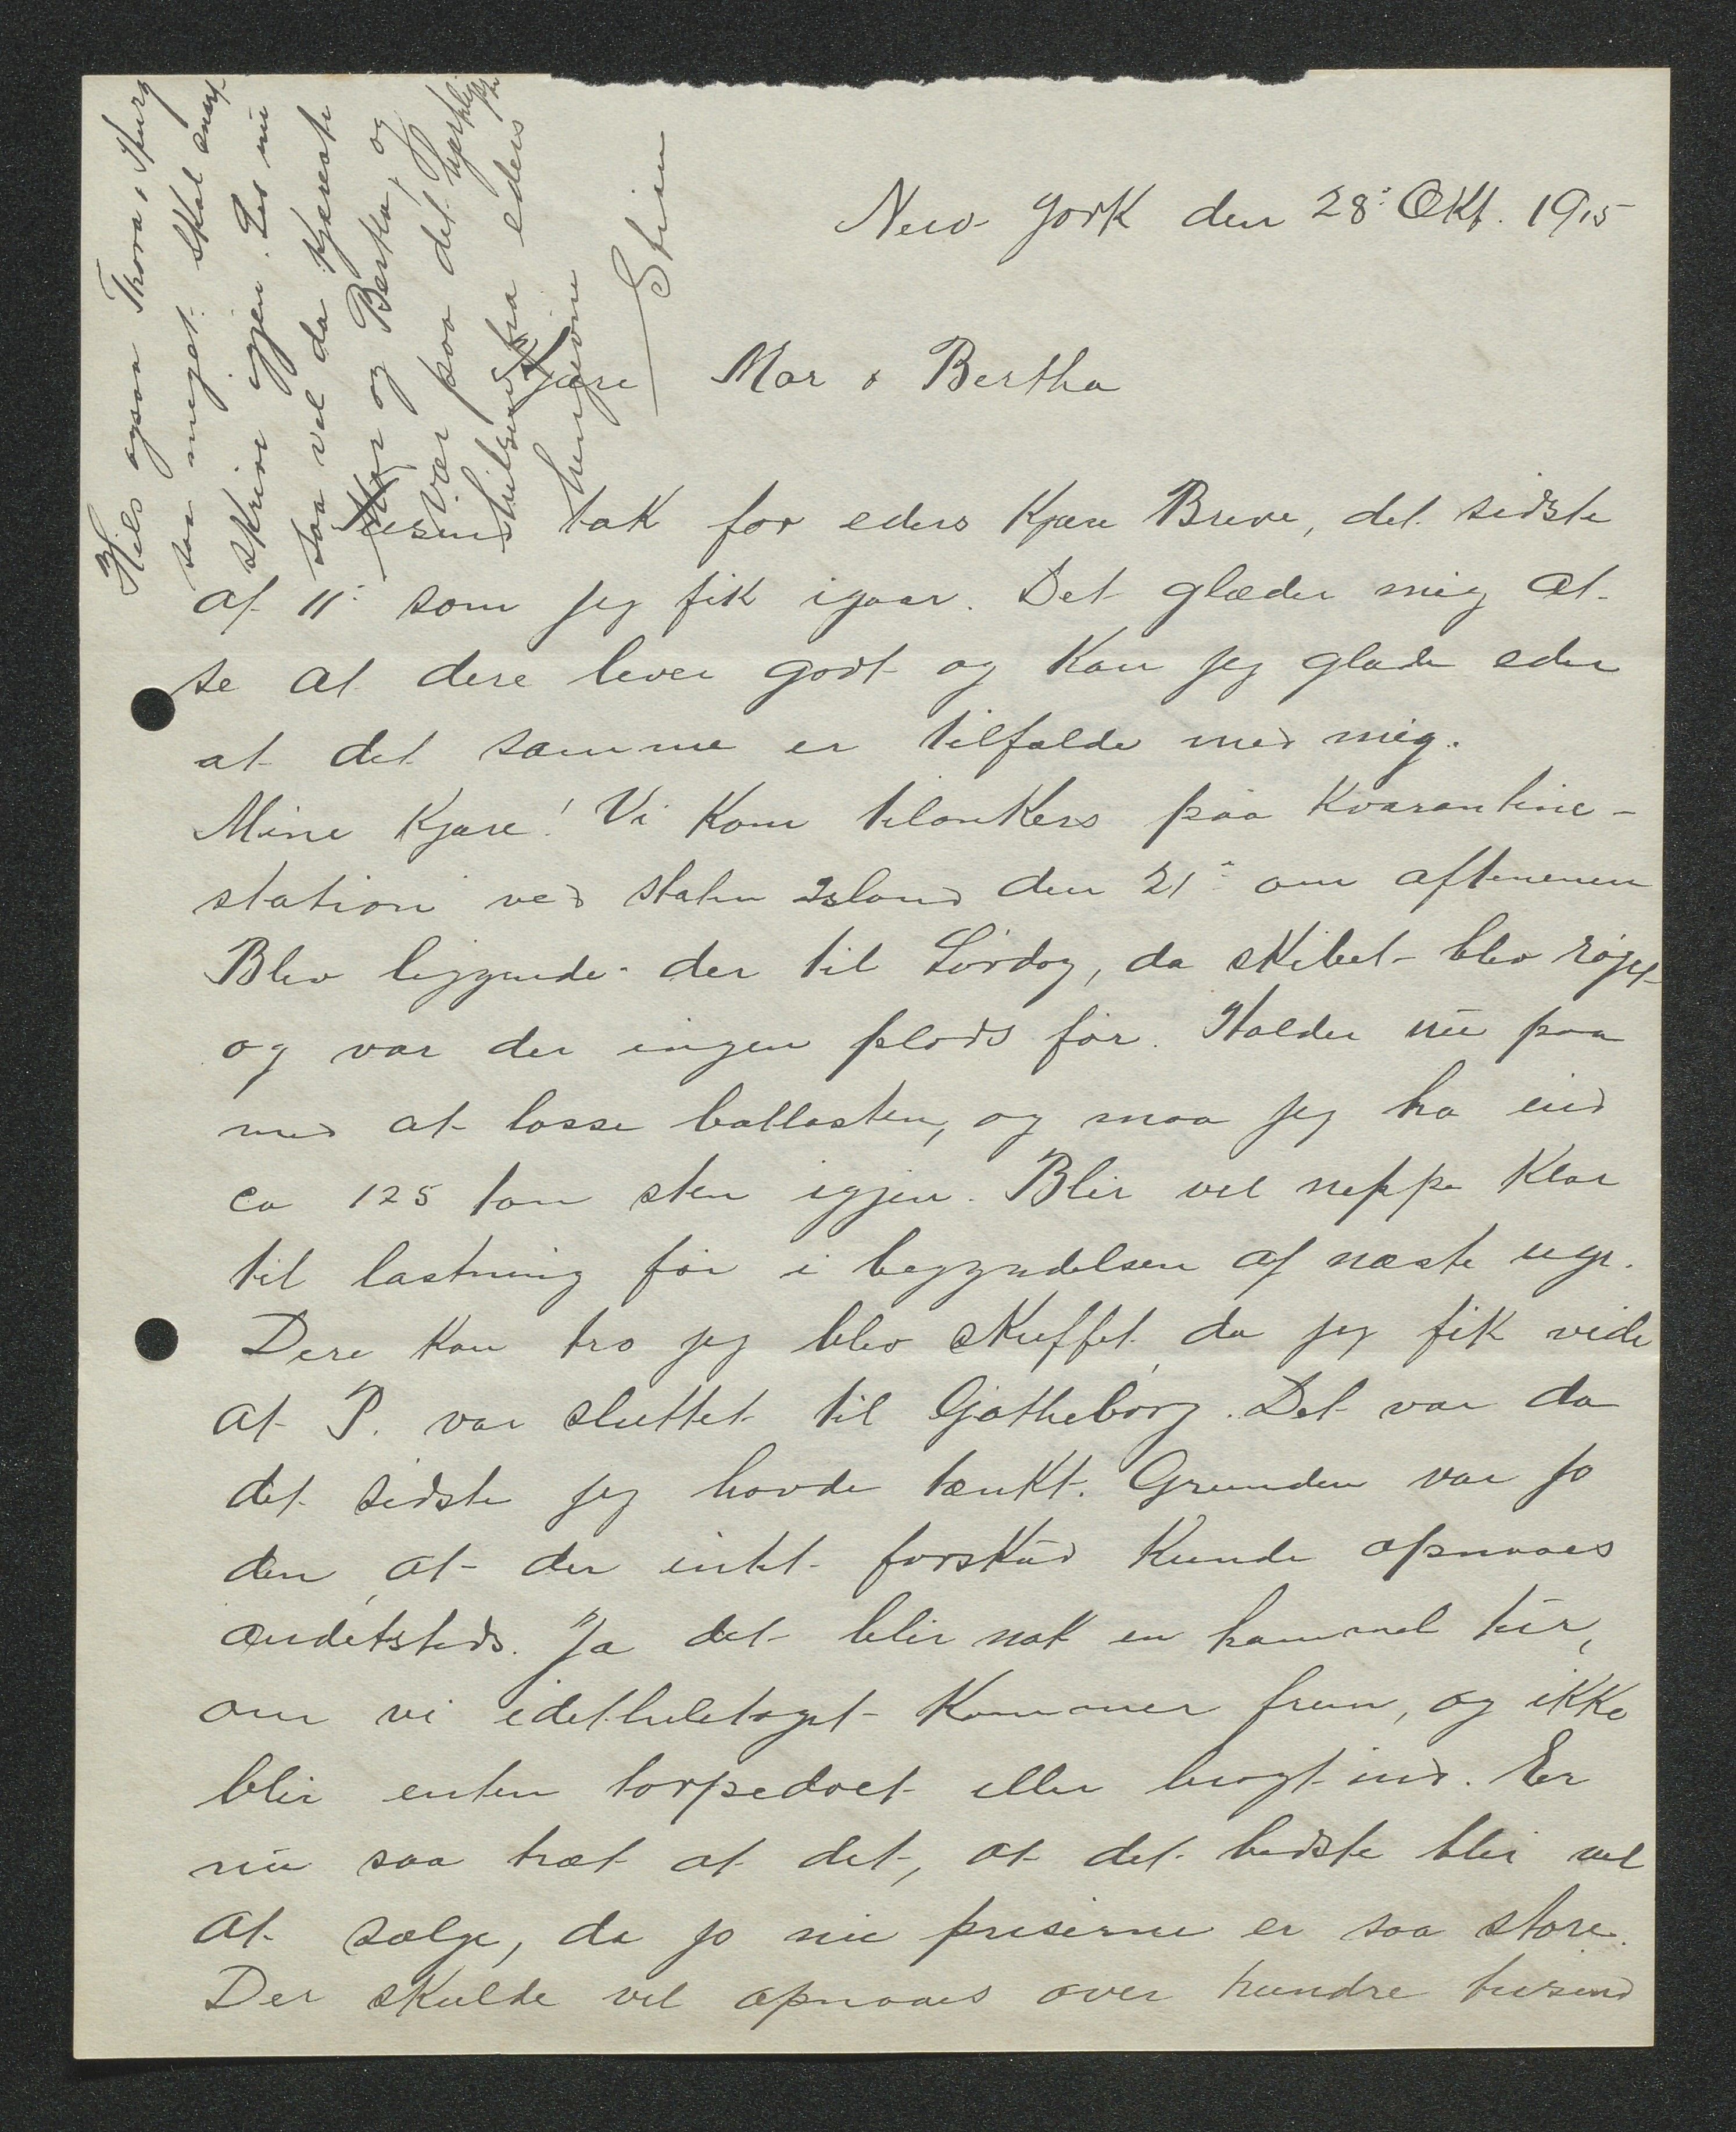 New York den 28: Okt. 1915
Kjære Mor & Bertha
Tusend tak for eders kjære Breve, det sidste
af 11: som jeg fik igaar. Det glæder mig at
se at dere lever godt og kan jeg glæde eder
at det samme er tilfælde med mig.
Mine kjære! Vi kom tilankers paa Kvarantine-
station ved Staten Island den 21: om aftenenen
Blev liggende der til Lørdag, da skibet blev røget
og var der ingen plads før. Holder nu paa
med at losse ballasten, og maa jeg ha ind
ca 125 ton sten igjen. Blir vel neppe klar
til lastning før i begyndelsen af næste uge.
Dere kan tro jeg blev skuffet, da jeg fik vide
at P. var sluttet til Gøtheborg. Det var da
det sidste jeg havde tænkt. Grunden var jo
den, at der intet forskud kunde opnaaes
andetsteds. Ja det blir nok en trammel tur,
om vi idethetetaget kommer frem, og ikke
blir enten torpedoet eller bragt ind. Er
nu saa træt at det, at det bedste blir vel
at sælge, da jo nu priserne er saa store.
Der skulde vel opnaaes over hundre tusend
Hils ogsaa Thora &
saa meget. Skal snart
skrive igjen. Les nu
saa vel da kjæreste
Mor og Berta, og
vær paa det hjerteligste
hilset fra eders
hengivne
Stian